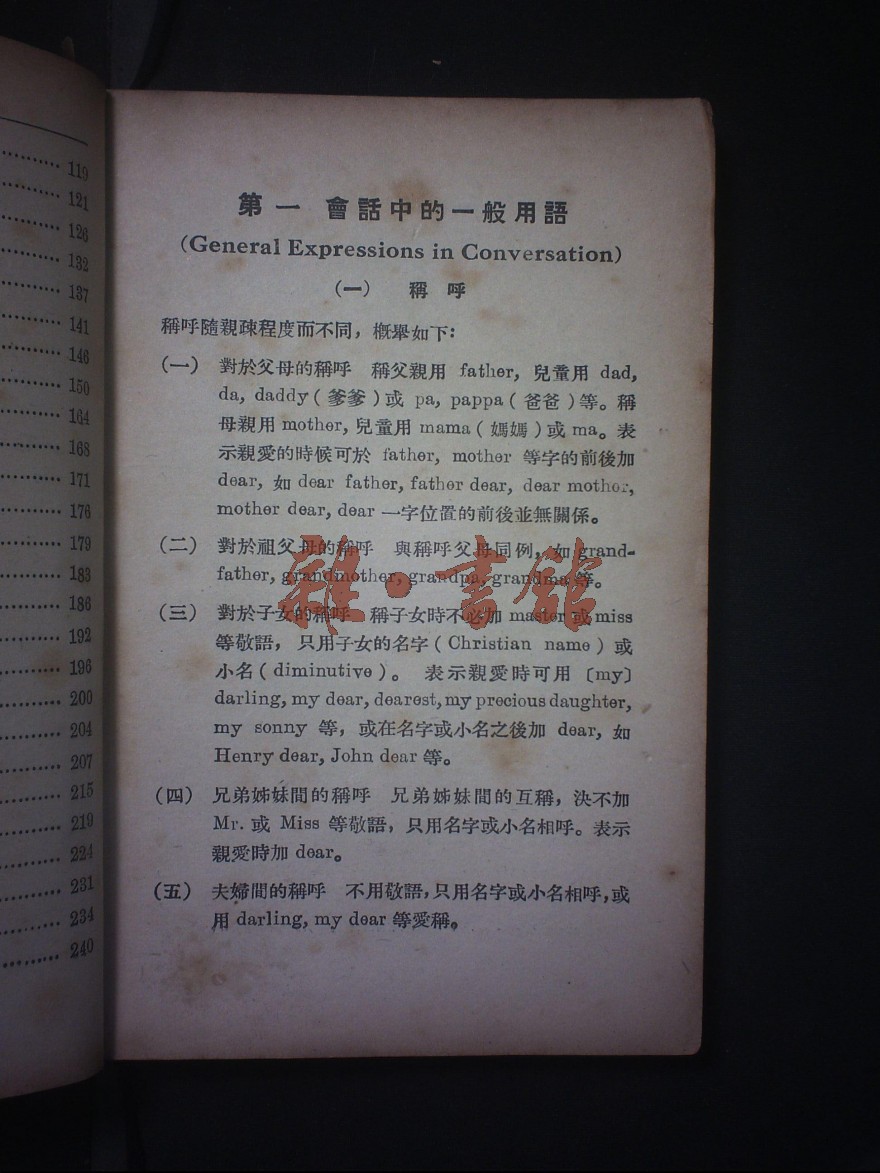 119
121
126
132
137
141
146
150
164
168
171
176
179
183
186
192
196
200
204
207
215
219
224
231
234
240
第一 會話中的一般用語
(General Expressions in Conversation)
(一) 稱呼
稱呼隨親疎程度而不同，概舉如下：
(一) 對於父母的稱呼 稱父親用 father, 兒童用 dad,
da, daddy (爹爹) 或 pa, pappa (爸爸) 等。稱
母親用 mother, 兒童用 mama (媽媽) 或 ma。表
示親愛的時候可於 father, mother 等字的前後加
dear, 如 dear father, father dear, dear mother,
mother dear, dear 一字位置的前後並無關係。
(二) 對於祖父母的稱呼 與稱呼父母同例，如 grand-
father, grandmother, grandpa, grandma 等。
(三) 對於子女的稱呼 稱子女時不必加 master 或 miss
等敬語，只用子女的名字 (Christian name) 或
小名 (diminutive)。 表示親愛時可用 〔my〕
darling, my dear, dearest, my precious daughter,
my sonny 等，或在名字或小名之後加 dear, 如
Henry dear, John dear 等。
(四) 兄弟姊妹間的稱呼 兄弟姊妹間的互稱，決不加
Mr. 或 Miss 等敬語，只用名字或小名相呼。表示
親愛時加 dear。
(五) 夫婦間的稱呼 不用敬語，只用名字或小名相呼，或
用 darling, my dear 等愛稱。
雜·書館